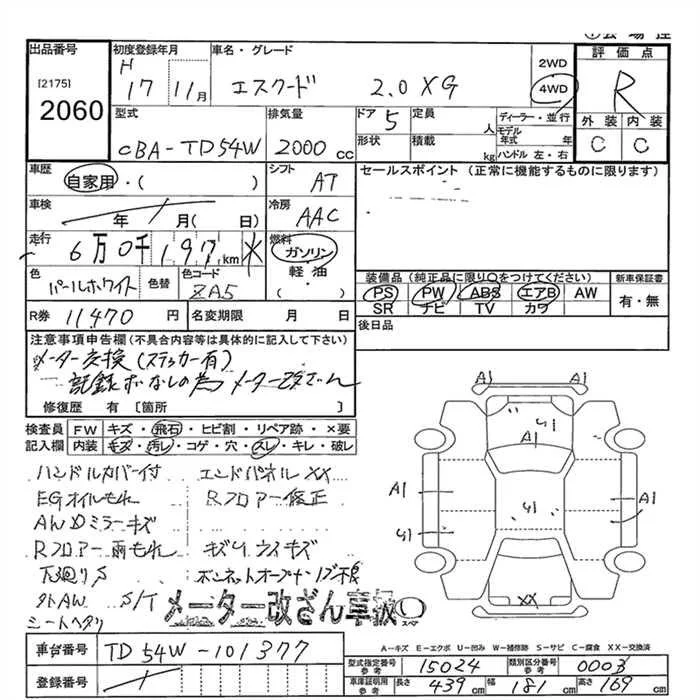 出品番号
[2175]
2060
初度登録年月
H
17 11月
車名・グレード
エスクード 2.0 XG
2WD
4WD
評価点
R
外装 内装
C C
型式
CBA-TD54W
排気量
2000 cc
ドア 5
定員 人
形状
積載 kg
ディーラー・並行
モデル年式 年
ハンドル 左・右
車歴
自家用・( )
シフト
AT
セールスポイント (正常に機能するものに限ります)
車検
年 月( 日)
冷房
AAC
走行
6万0千197km *
燃料
ガソリン
軽油
( )
色
パールホワイト
色替
色コード
ZA5
装備品 (純正品に限り○をつけてください)
PS PW ABS エアB AW
SR ナビ TV カワ
新車保証書
有・無
R券 11,470 円
名変期限 月 日
後日品
注意事項申告欄(不具合内容等は具体的に記入して下さい)
メーター交換(ステッカー有)
記録簿なしの為メーター改ざん
修復歴 有 [箇所 ]
検査員
記入欄
FW キズ・飛石・ヒビ割・リペア跡・×要
内装 キズ・汚レ・コゲ・穴・スレ・キレ・破レ
ハンドルカバー付 エンドパネルXX
EGオイルもれ Rフロアー修正
AWDミラーキズ
Rフロアー雨もれ キズUウスキズ
下廻りS ボンネットオープナー
外AW S/T
シートヘタリ
メーター改ざん車扱
スペア
A1 A1
U1
A1
A1 U1 A1
U1 A1
XX
車台番号 TD54W-101377
登録番号
A-キズ E-エクボ U-凹み W-補修跡 S-サビ C-腐食 XX-交換済
型式指定番号 参考 15024
類別区分番号 参考 0003
車庫証明用 参考 長さ 439cm 幅 181cm 高さ 169cm